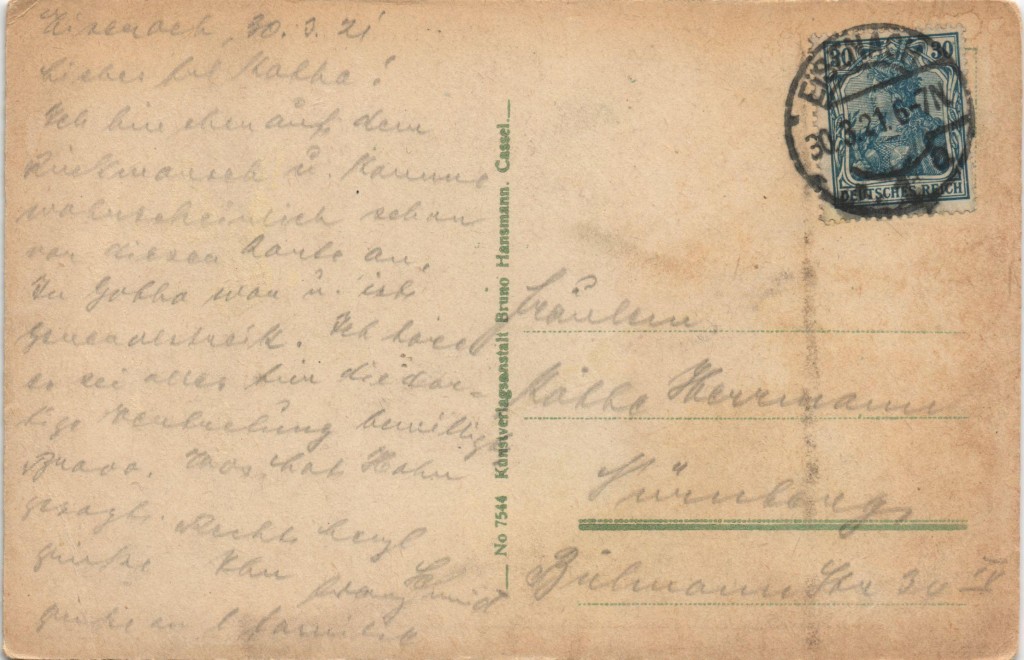 Eisenach, 30.3.21
Liebes Frl Käthe!
Ich bin eben auf dem
Rückmarsch u. komme
wahrscheinlich schon
vor dieser Karte an.
In Gotha war u. ist
Generalstreik. Ich höre
es sei alles für die dor-
tige Vertretung bewilligt
Bravo. Was hat Hahn
gesagt. Recht herzl
Grüße Ihr
Schmid
Grüße an d Familie
No 7544 Kunstverlagsanstalt Bruno Hansmann. Cassel.
EISENACH
30.3.21.6-7N
30 30
DEUTSCHES REICH
Fräulein
Käthe Herrmann
Nürnberg
Bülmann Str 30 IV